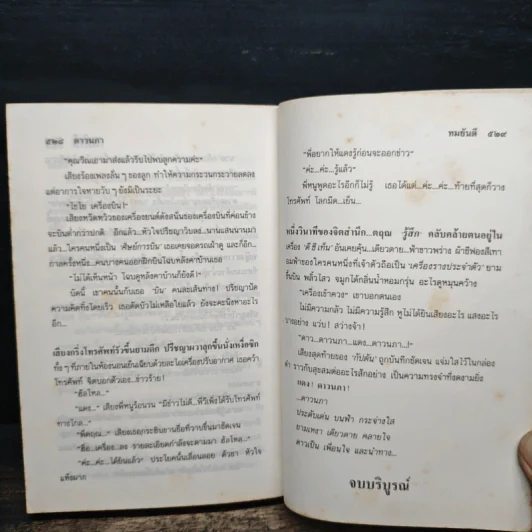 ๕๒๘ ดาวนภา
"คุณวีณเอามาส่งแล้วรีบไปพบลูกความค่ะ"
เสียงร้องเพลงลั่น ๆ ของลูก ทำให้ความกระวนกระวายลดลง
แต่อาการใจหายวับ ๆ ยังมีเป็นระยะ
"ไชโย เครื่องบิน!"
เสียงหวีดหวิวของเครื่องยนต์ดังสนั่นของเครื่องบินที่ค่อนข้าง
จะบินต่ำกว่าปกติ อีกแล้ว...หัวใจปรัชญาวับลง...นานแสนนานมา
แล้ว...ใครคนหนึ่งเป็น 'ศิษย์การบิน' เธอเคยพบตรณเฝ้าดู และก็อีก...
กาลครั้งหนึ่ง...คนบางคนออกฝึกบินโฉบหลังคาบ้านเธอ
"ไม่ได้เห็นหน้า โฉบดูหลังคาบ้านก็ยังดี!"
บัดนี้ เขาคนนั้นกับเธอ 'บิน' คนละเส้นทาง! ปรัชญาปัด
ความคิดทิ้งโดยเร็ว เธอตัดบัวไม่เหลือใยแล้ว ยังจะคะนึงหาอะไร
อีก...
เสียงกริ่งโทรศัพท์รัวขึ้นยามดึก ปรัชญาผวาลุกขึ้นนั่งเหงื่อซิก
ทั้ง ๆ ที่ภายในห้องนอนเย็นเฉียบด้วยละไอเครื่องปรับอากาศ เธอคว้า
โทรศัพท์ จิตบอกตัวเธอ...ข่าวร้าย!
"ฮัลโหล..."
"แดง..." เสียงพี่หนูร้อนรน "มีข่าวไม่ดี..พีวีเพิ่งได้รับโทรศัพท์
ทางไกล..."
"พี่ตฤณ..." เสียงเธอกระซิบถามชื่อที่วาบขึ้นมาชัดเจน
"ฮื่อ...เครื่อง...ลง รายละเอียดกำลังจะตามมา ฮัลโหล..."
"ค่ะ...ค่ะ...ได้ยินแล้ว" ประโยคนั้นเลื่อนลอย ตัวชา หัวใจ
แห้งผาก
ทมยันตี ๕๒๙
"พี่อยากให้แดงรู้ก่อนจะออกข่าว"
"ค่ะ...ค่ะ...รู้แล้ว"
พี่หนูพูดอะไรอีกก็ไม่รู้ เธอได้แต่...ค่ะ...ค่ะ...ท้ายที่สุดก็วาง
โทรศัพท์ โลกมืด...เย็น...
หนึ่งวินาทีของจิตสำนึก...ตฤณ 'รู้สึก' คล้ายตนอยู่ใน
เครื่อง 'ดีซีเท็น' อันเคยคุ้น...เดียวดาย...ฟ้าขาวพร่าง ผ้าซีฟองสีเทา
เครื่องรางประจำตัว'
ยาม
ขึ้น พลิ้วไสว จมูกได้กลิ่นน้ำหอมกรุ่น อะไรดูหมุนคว้าง
"เครื่องเข้าควง" เขาบอกตนเอง
ไม่มีความกลัว ไม่มีความรู้สึก หูไม่ได้ยินเสียงอะไร แสงอะไร
วาบอย่าง แวบ! สว่างจ้า!
"ดาว...ดาวนภา...แดง...ดาวนภา..."
เสียงสุดท้ายของ 'กัปตัน' ถูกบันทึกชัดเจน แจ่มใสไว้ในกล่อง
ดำ ราวกับสุขสมต่ออะไรสักอย่าง เป็นความทรงจำที่งดงามยิ่ง
แดง! ดาวนภา
...ดาวนภา
ประดับเด่น บนฟ้า กระจ่างใส
ยามเหงา เดียวดาย คลายใจ
ดาวเป็น เพื่อนใจ และนำทาง...
จบบริบูรณ์